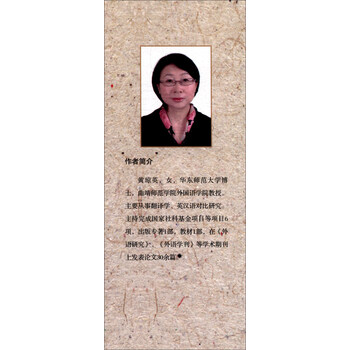 作者简介
黄琼英，女，华东师范大学博
士，曲靖师范学院外国语学院教授，
主要从事翻译学、英汉语对比研究。
主持完成国家社科基金项目等项目6
项，出版专著1部，教材1部，在《外
语研究》、《外语学刊》等学术期刊
上发表论文30余篇。